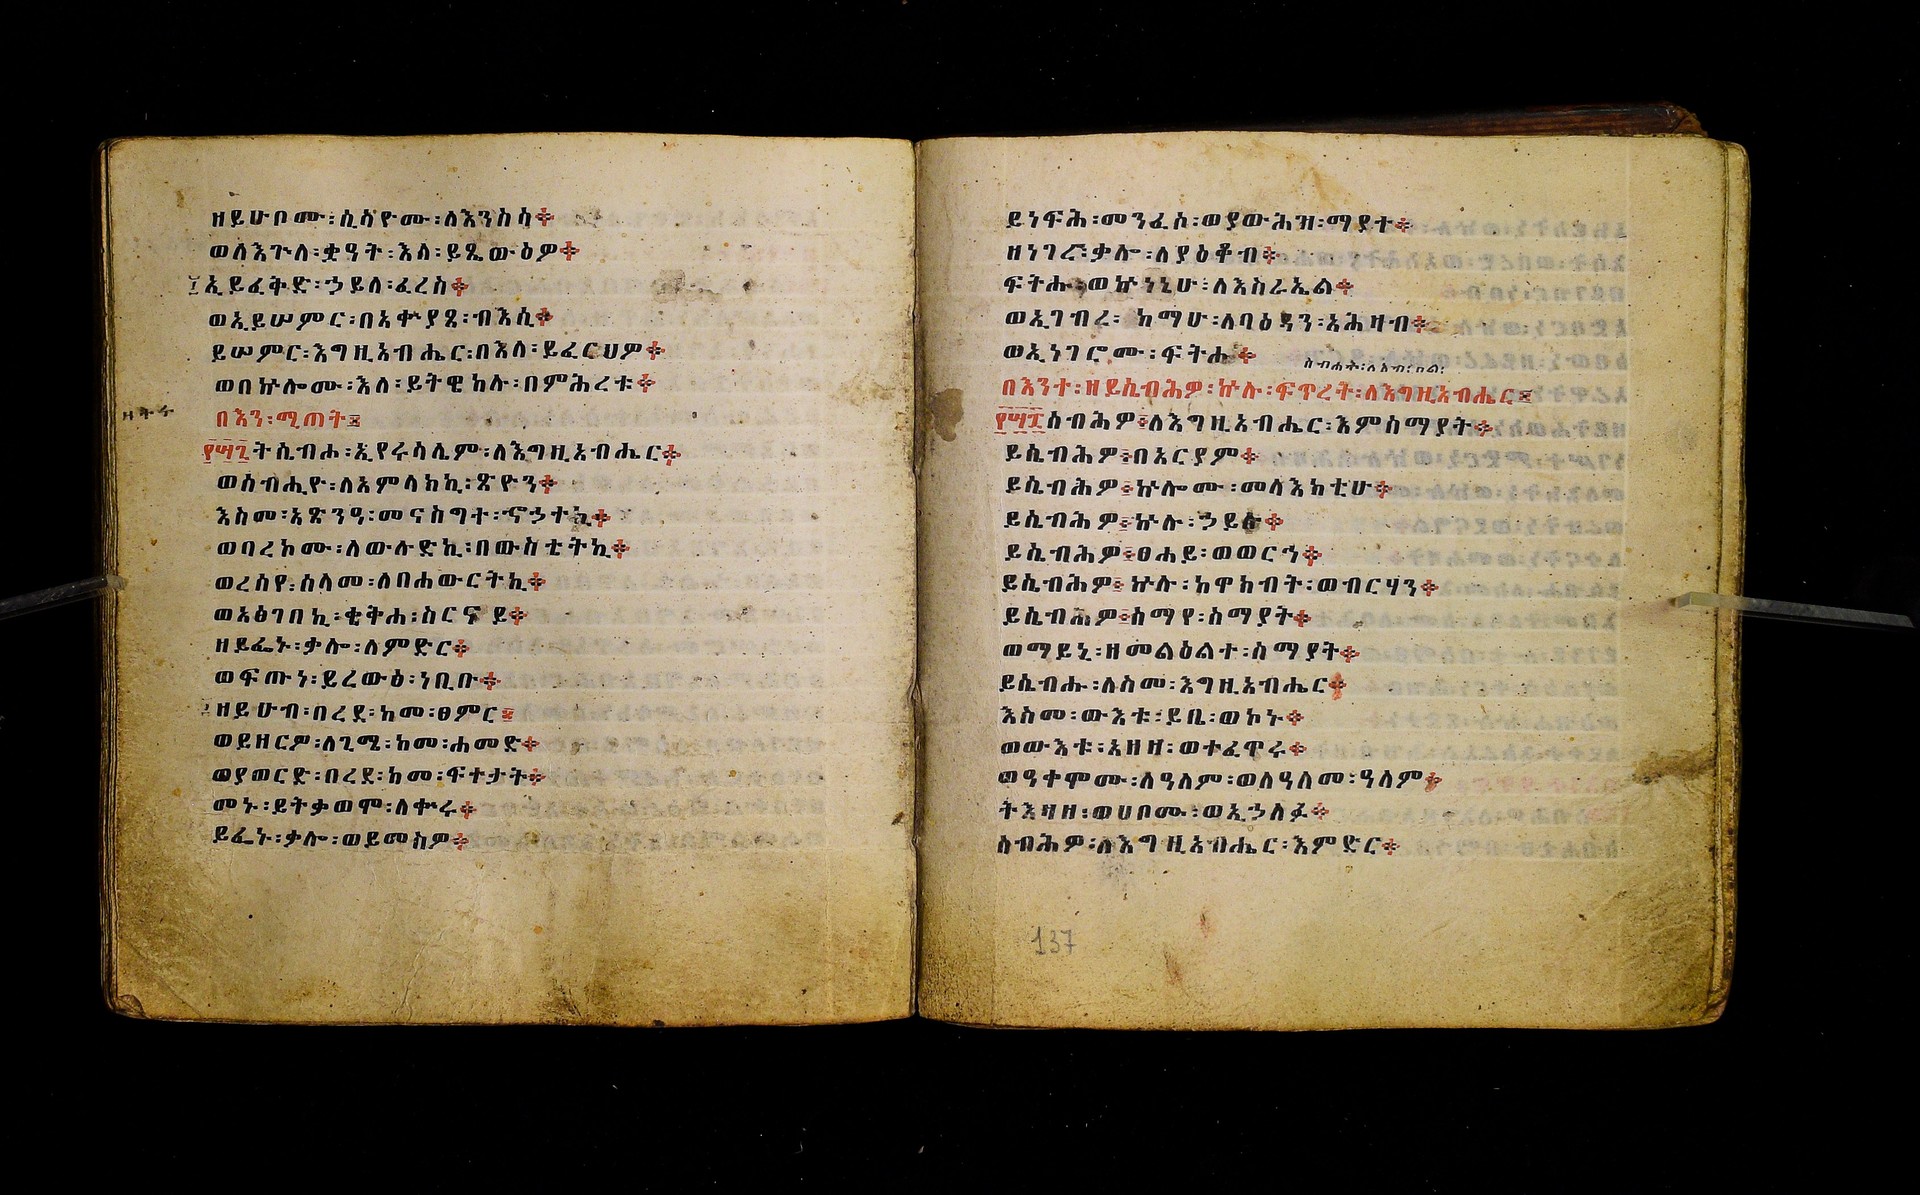 ዘይሁቦሙ፡ሲሳዮሙ፡ለእንስሳ፨
ወለእጕለ፡ቋዓት፡እለ፡ይጼውዕዎ፨
ኢይፈቅድ፡ኃይለ፡ፈረስ፨
ወኢይሠምር፡በአቍያጸ፡ብእሲ፨
ይሠምር፡እግዚአብሔር፡በእለ፡ይፈርህዎ፨
ወበኵሎሙ፡እለ፡ይትዌከሉ፡በምሕረቱ፨
በእን፡ሚጠት፡
፻፵፯ትሴብሖ፡ኢየሩሳሌም፡ለእግዚአብሔር፨
ወሰብሒዮ፡ለአምላክኪ፡ጽዮን፨
እስመ፡አጽንዓ፡መናስግተ፡ኆኃተኪ፨
ወባረኮሙ፡ለውሉድኪ፡በውስቴትኪ፨
ወረሰየ፡ሰላመ፡ለበሐውርትኪ፨
ወአፅገበኪ፡ቄቅሐ፡ስርናይ፨
ዘይፌኑ፡ቃሎ፡ለምድር፨
ወፍጡነ፡ይረውፅ፡ነቢቡ፨
ዘይሁብ፡በረደ፡ከመ፡ፀምር፡
ወይዘርዎ፡ለጊሜ፡ከመ፡ሐመድ፨
ወያወርድ፡በረደ፡ከመ፡ፍተታት፨
መኑ፡ይትቃወሞ፡ለቍሩ፨
ይፌኑ፡ቃሎ፡ወይመስዎ፨
ይነፍሕ፡መንፈሰ፡ወያውሕዝ፡ማያተ፨
ዘነገሮ፡ቃሎ፡ለያዕቆብ፨
ፍትሑ፡ወኵነኔሁ፡ለእስራኤል፨
ወኢገብረ፡ከማሁ፡ለባዕዳን፡አሕዛብ፨
ወኢነገሮሙ፡ፍትሖ፨
በእንተ፡ዘይሴብሕዎ፡ኵሉ፡ፍጥረት፡ለእግዚአብሔር፡
፻፵፰ሰብሕዎ፡ለእግዚአብሔር፡እምሰማያት፨
ይሴብሕዎ፡በአርያም፨
ይሴብሕዎ፡ኵሎሙ፡መላእክቲሁ፨
ይሴብሕዎ፡ኵሉ፡ኃይሉ፨
ይሴብሕዎ፡ፀሐይ፡ወወርኅ፨
ይሴብሕዎ፡ኵሉ፡ከዋክብት፡ወብርሃን፨
ይሴብሕዎ፡ሰማየ፡ሰማያት፨
ወማይኒ፡ዘመልዕልተ፡ሰማያት፨
ይሴብሑ፡ለስመ፡እግዚአብሔር፨
እስመ፡ውእቱ፡ይቤ፡ወኮኑ፨
ወውእቱ፡አዘዘ፡ወተፈጥሩ፨
ወዓቀሞሙ፡ለዓለም፡ወለዓለመ፡ዓለም፨
ትእዛዘ፡ወሀቦሙ፡ወኢኃለፉ፨
ሰብሕዎ፡ለእግዚአብሔር፡እምድር፨
137